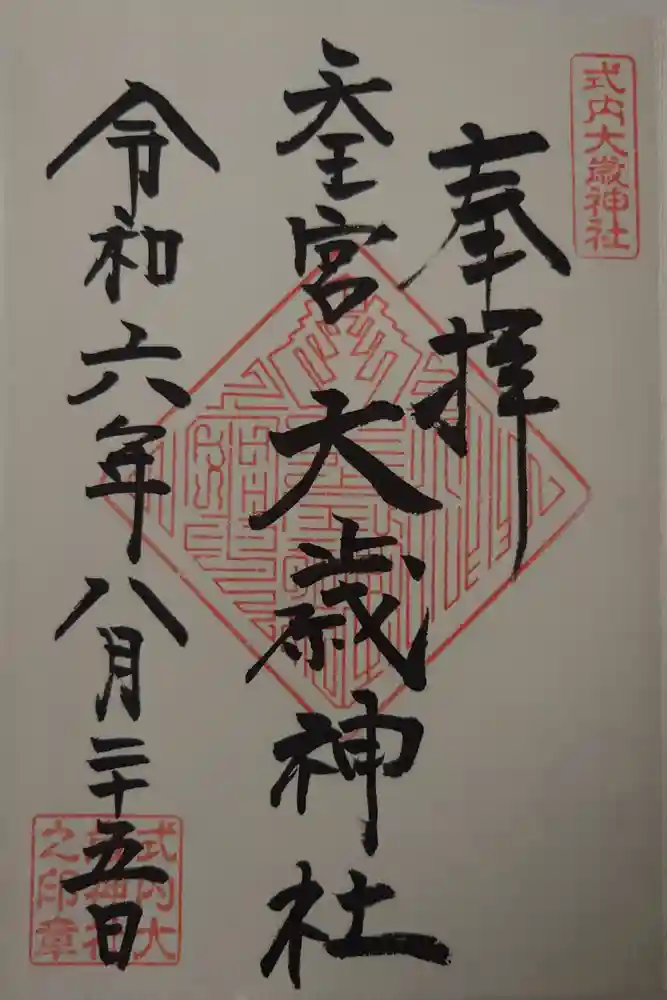 式内大歳神社
奉拝
天王宮 大歳神社
令和六年八月二十五日
式内大
歳神社
之印章